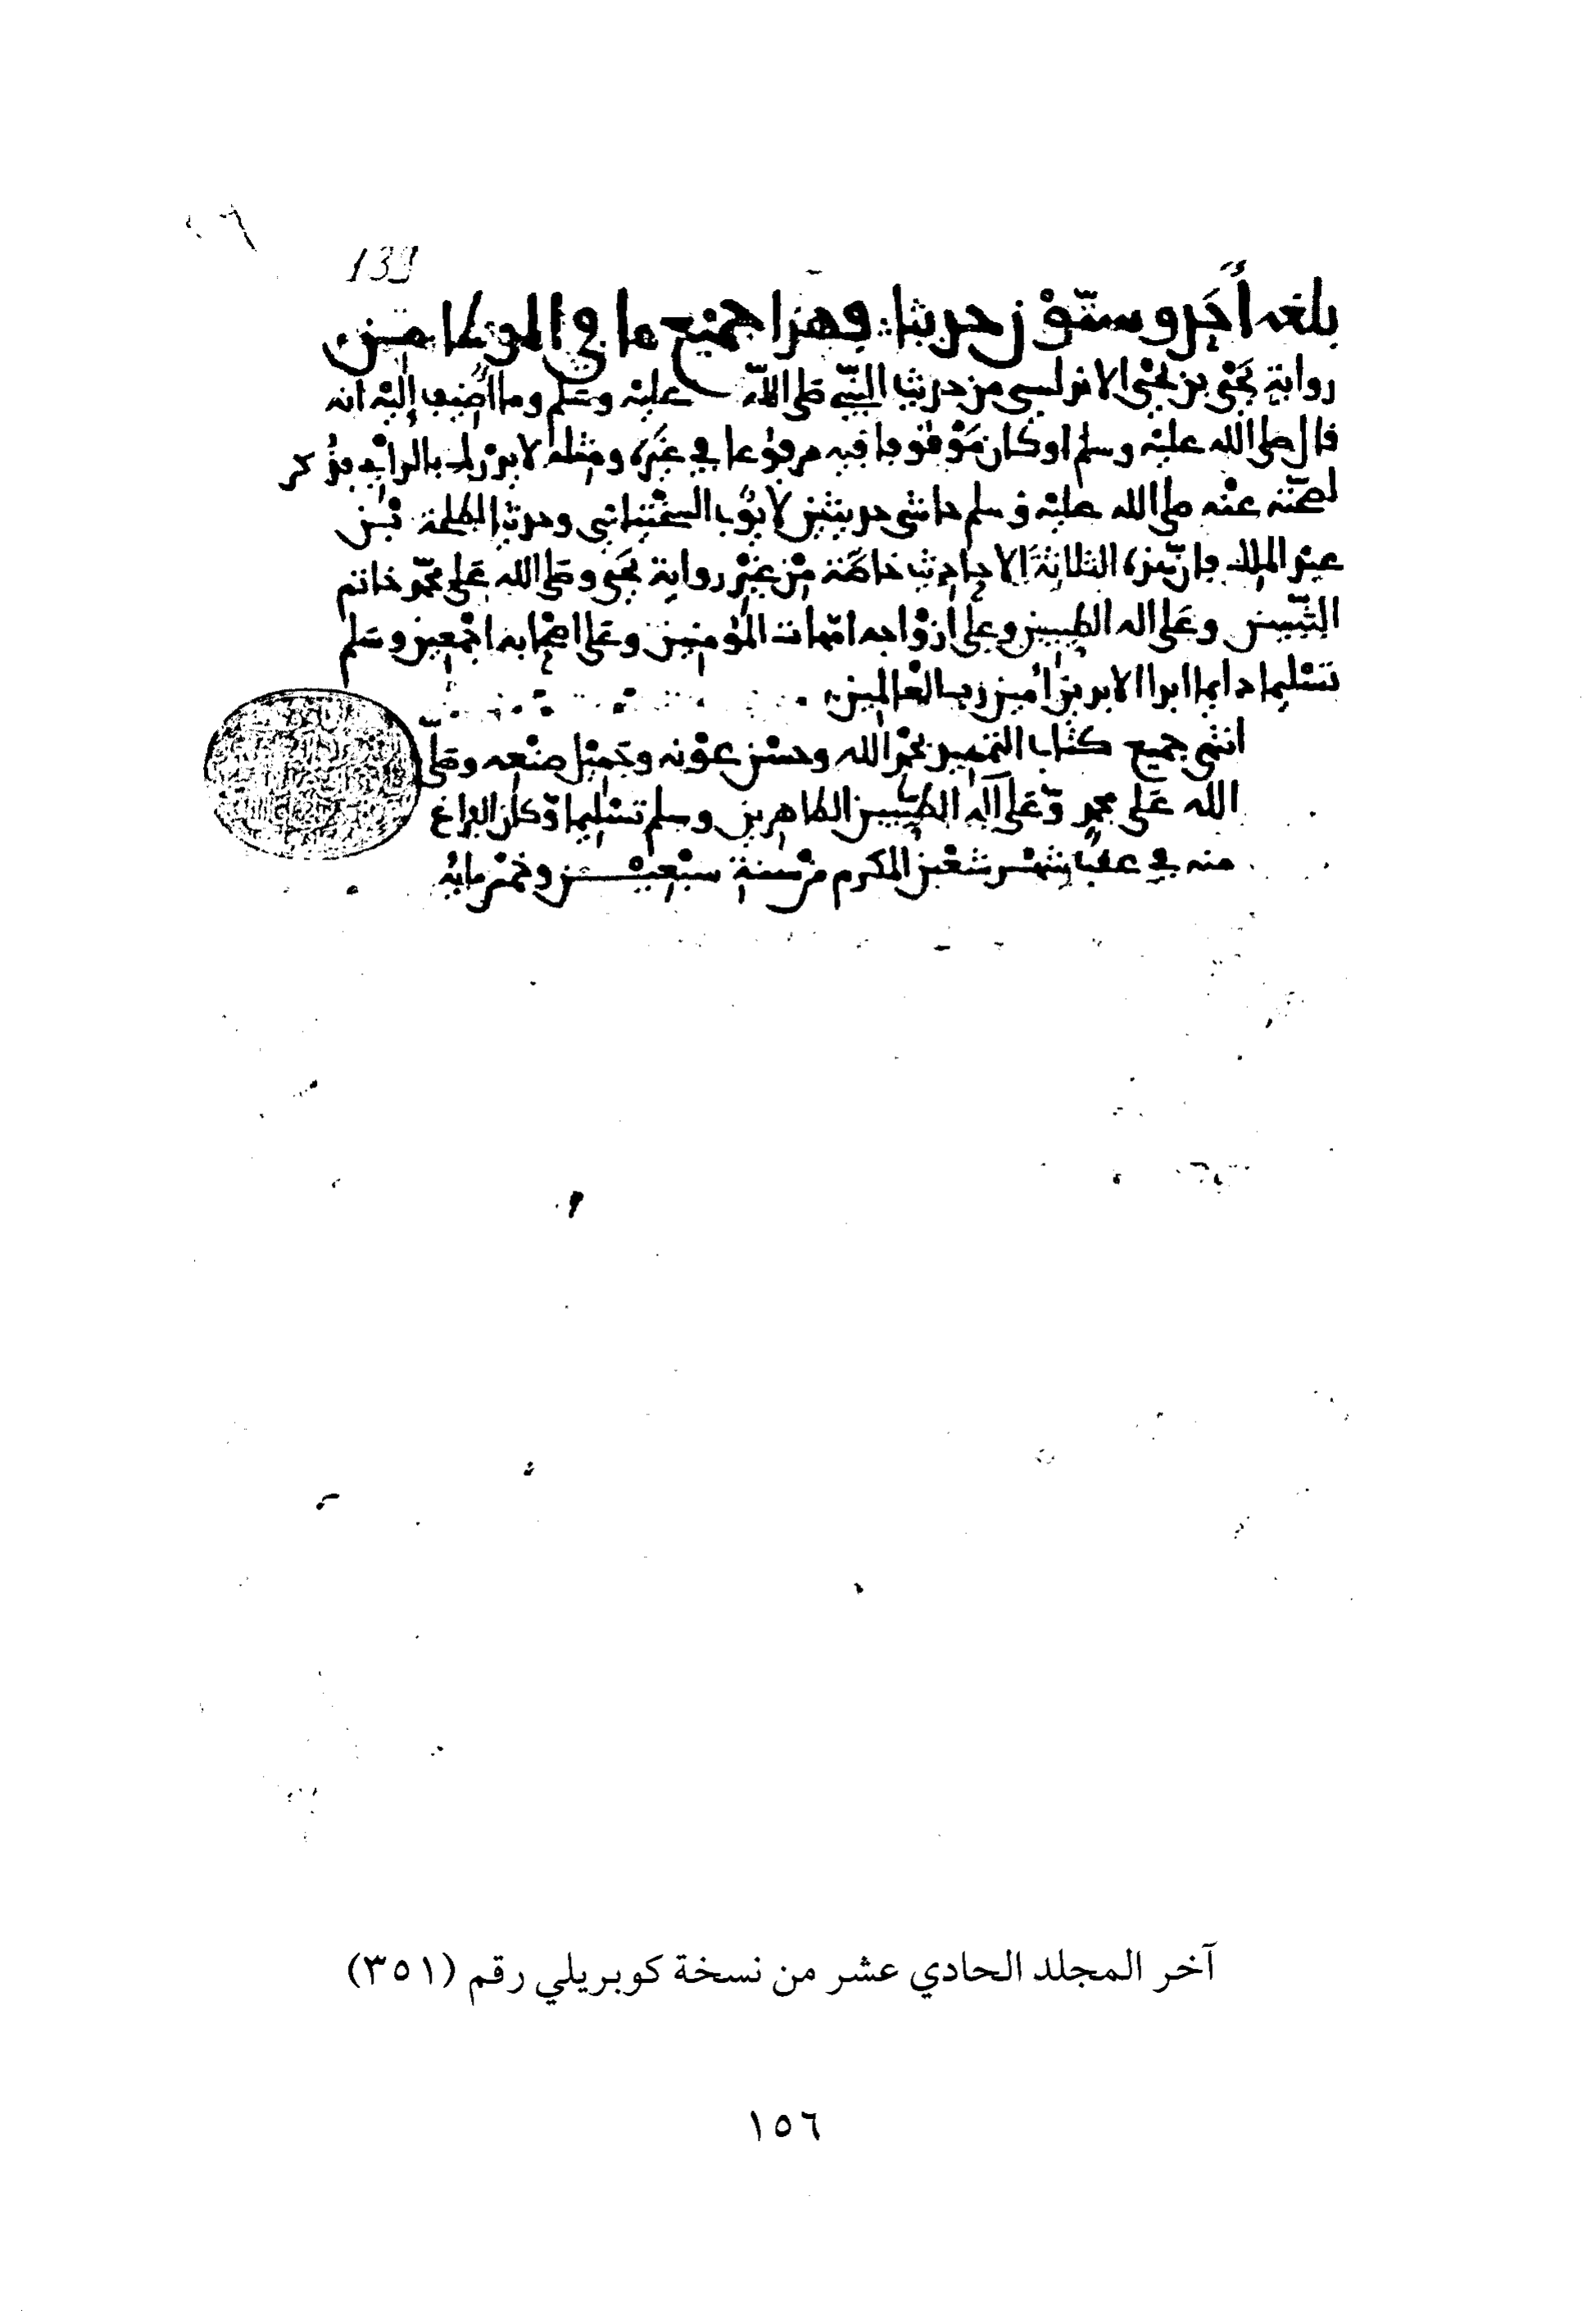 139
بلغه أحد وستون حديثا فهذا جميع ما في الموطا من
رواية يحيى بن يحيى الاندلسي من حديث النبي صلى الله عليه وسلم وما اضيف إليه انه
قال صلى الله عليه وسلم او كان موقوفا فيه مرفوعا في غيره ومثله لا يدرك بالراي فذكر
لصحته عنه صلى الله عليه وسلم حاشى حديثين لايوب السختياني وحديث لطلحة بن
عبد الملك فان هذه الثلاثة الاحاديث خاصة من غير رواية يحيى وصلى الله على محمد خاتم
النبيين وعلى اله الطيبين وعلى ازواجه امهات المؤمنين وعلى اصحابه اجمعين وسلم
تسليما دايما ابدا الابدين امين رب العالمين
انتهى جميع كتاب التمهيد بحمد الله وحسن عونه وجميل صنعه وصلى
الله على محمد وعلى آله الطيبين الطاهرين وسلم تسليما وكان الفراغ
منه في عقب شهر شعبن المكرم من سنة سبعين وخمس مايه
آخر المجلد الحادي عشر من نسخة كوبريلي رقم (٣٥١)
١٥٦